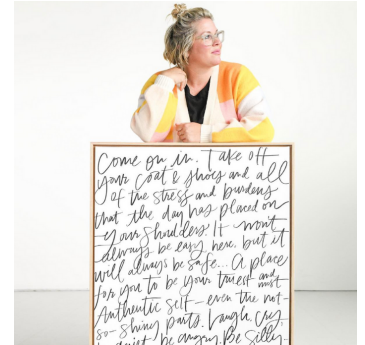 Come on in. Take off
your coat & shoes and all
of the stress and burdens
that the day has placed on
your shoulders. It won't
always be easy here, but it
will always be safe... A place
for you to be your truest and most
Authentic self - even the not-
so-shiny parts. Laugh, cry,
quiet, be angry. Be silly.